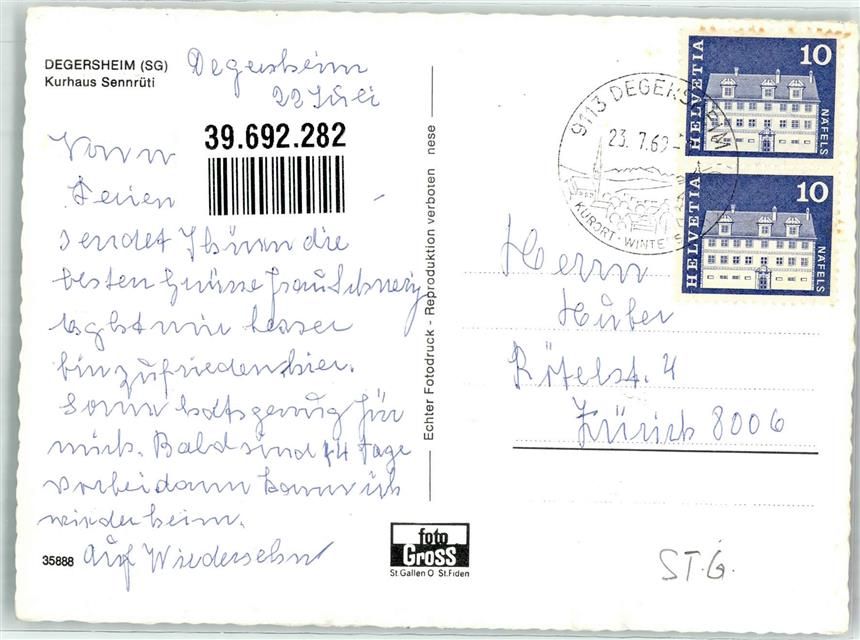 DEGERSHEIM (SG)
Kurhaus Sennrüti
Degersheim
22 Juli
39.692.282
Vorm
Ferien
sendet Ihnen die
besten Grüsse Frau Schweiz
es geht mir besser
bin zufrieden hier.
Sonne hats genug für
mich. Bald sind 14 Tage
vorbei dann kann ich
wieder heim.
Auf Wiedersehn
35888
Echter Fotodruck - Reproduktion verboten nese
foto
GROSS
St.Gallen O St.Fiden
9113 DEGERSHEIM
23. 7.69-
KURORT · WINTE S
HELVETIA 10 NÄFELS
HELVETIA 10 NÄFELS
Herrn
Huber
Rötelst. 4
Zürich 8006
ST.G.